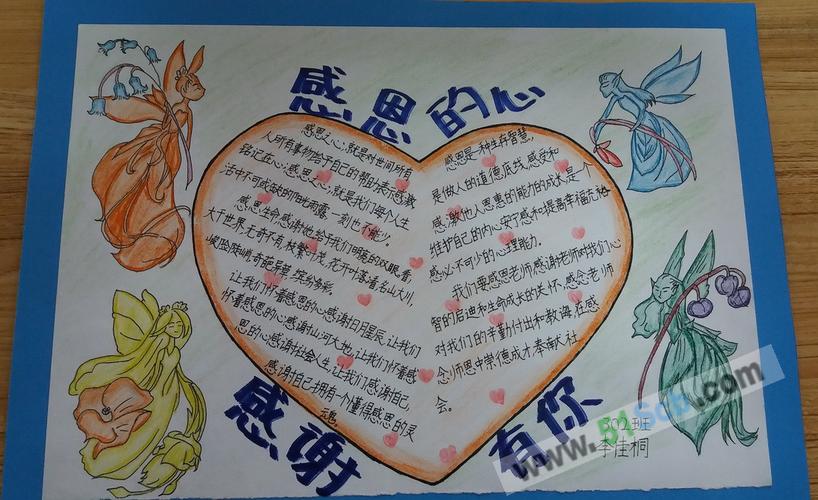 感恩的心
感恩之心,就是对世间所有
人所有事物给予自己的帮助表示感激
铭记在心;感恩之心,就是我们每个人生
活中不可或缺的阳光雨露,一刻也不能少。
感恩生命感谢她给予我们明亮的双眼,看
大千世界,无奇不有,枝繁叶茂,花开叶落,看名山大川,
峻险陡峭,奇葩异草,缤纷多彩。
让我们怀着感恩的心感谢日月星辰,让我们
怀着感恩的心感谢山河大地,让我们怀着感
恩的心感谢社会人生,让我们感谢自己,
感谢自己拥有个懂得感恩的灵
魂。
感恩是一种生存智慧,
是做人的道德底线,感受和
感激他人恩惠的能力的成长是个
维护自己的内心安宁感和提高幸福充裕
感必不可少的心理能力。
我们要感恩老师感谢老师对我们心
智的启迪和生命成长的关怀,感念老师
对我们的辛勤付出和教诲,在感
念师恩中崇德成才奉献社
会。
感谢有你
502班
李佳桐
www.51Scb.com